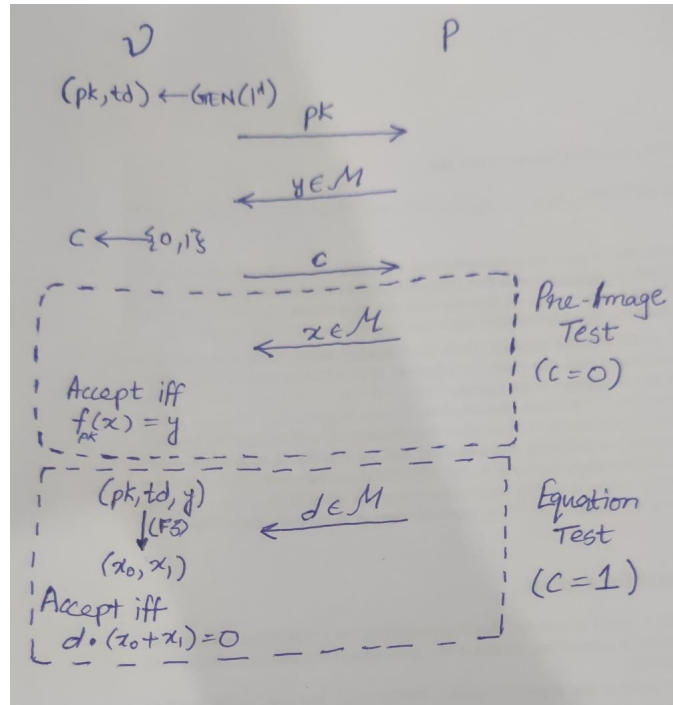 V P
(pk,td) ← GEN(1^λ)
pk
y ∈ M
C ← {0,1}
c
x ∈ M
Pre-Image
Test
(C=0)
Accept iff
f_pk(x) = y
(pk,td,y)
d ∈ M
↓(F3)
(x₀,x₁)
Equation
Test
(C=1)
Accept iff
d•(x₀+x₁)=0